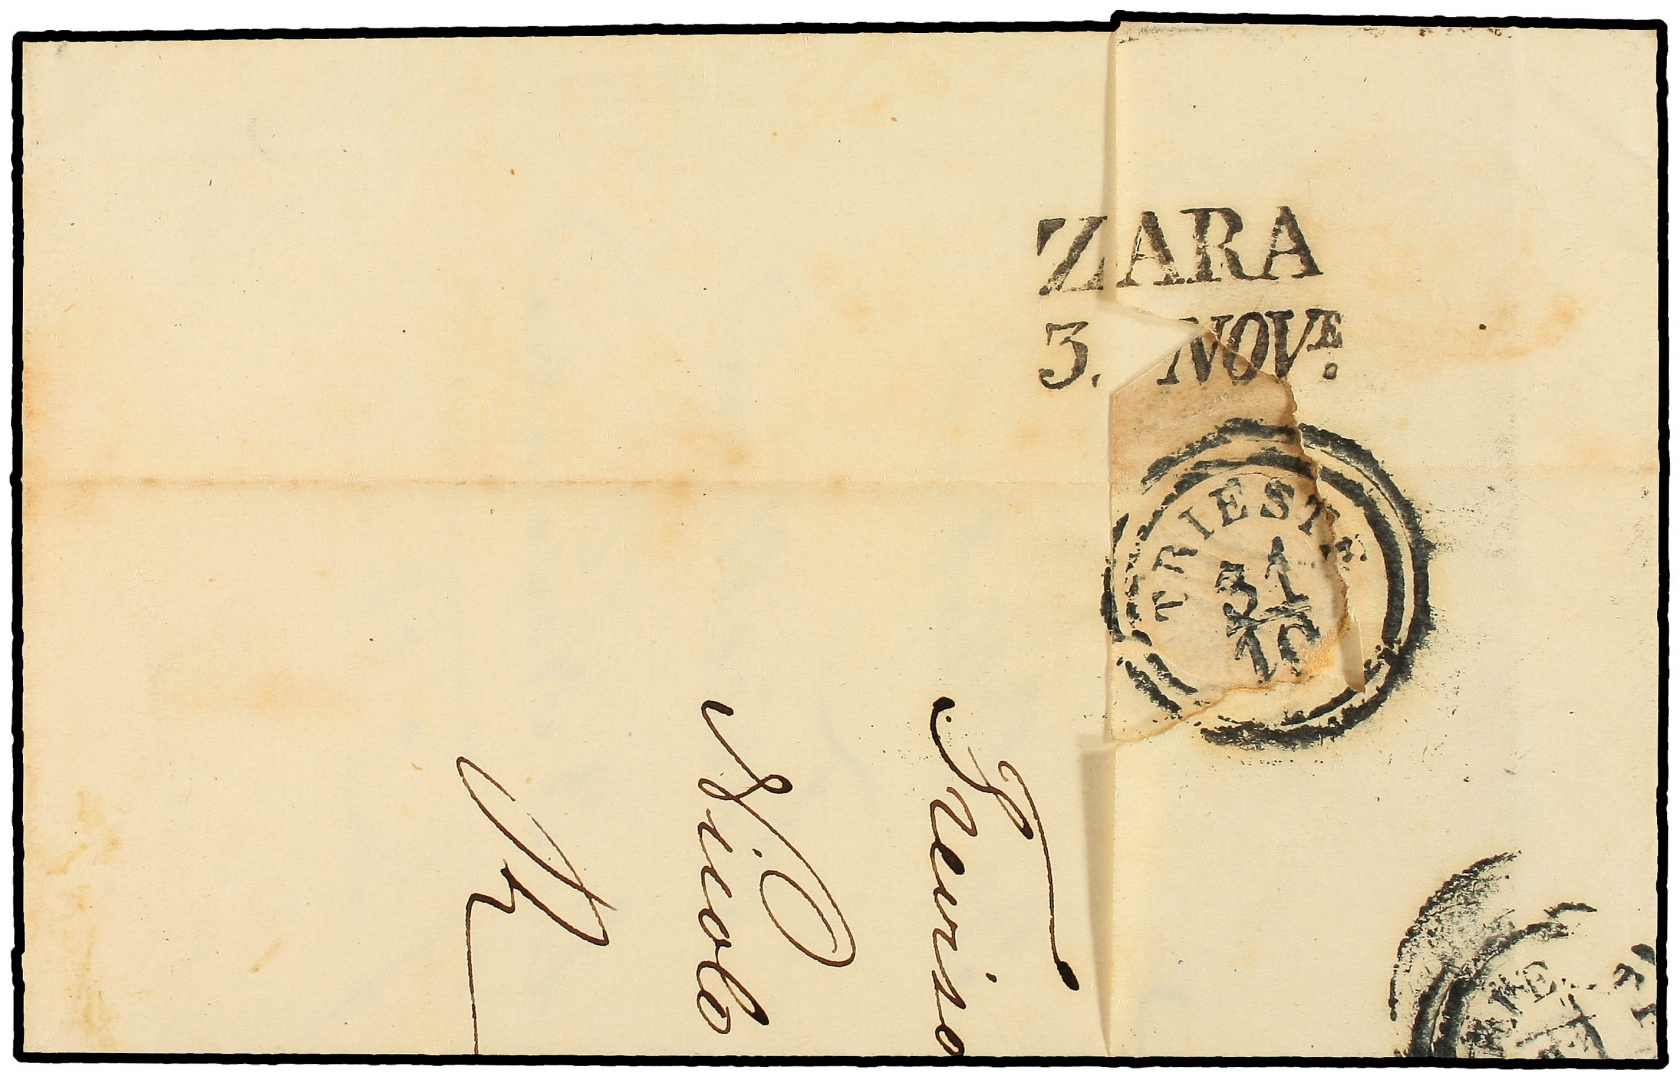 ZARA
3. NOVE.
TRIESTE
31
10
Treviso
Nicolo